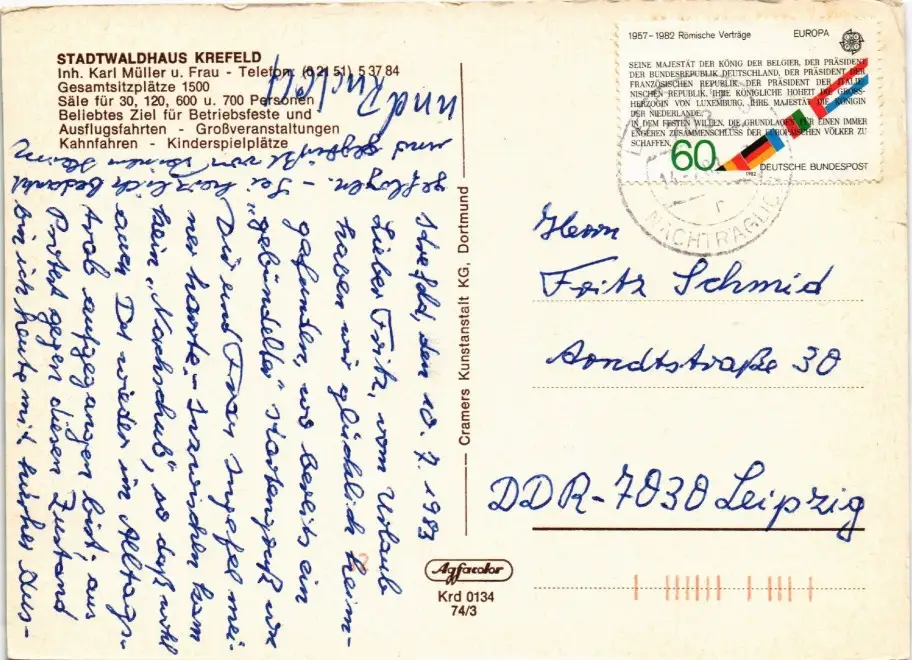 STADTWALDHAUS KREFELD
Inh. Karl Müller u. Frau - Telefon: (0 21 51) 5 37 84
Gesamtsitzplätze 1500
Säle für 30, 120, 600 u. 700 Personen
Beliebtes Ziel für Betriebsfeste und
Ausflugsfahrten - Großveranstaltungen
Kahnfahren - Kinderspielplätze
Krefeld, den 10. 7. 1983
Lieber Fritz, vom Urlaub
haben wir glücklich heim-
gefunden, wo bereits ein
„gebündelter" Kartengruß von
Dir und Frau Ingefel mei-
ner harrte. - Inzwischen kam
kein „Nachschub", so daß wohl
auch Du wieder im Alltags-
trab aufgegangen bist. aus
Protest gegen diesen Zustand
bin ich heute mit kurzer Aus-
geflogen. - Sei herzlich bedankt
und gegrüßt von Deinem Heinz
und Rudolf
Cramers Kunstanstalt KG, Dortmund
Agfacolor
Krd 0134
74/3
1957-1982 Römische Verträge EUROPA
SEINE MAJESTÄT DER KÖNIG DER BELGIER, DER PRÄSIDENT
DER BUNDESREPUBLIK DEUTSCHLAND, DER PRÄSIDENT DER
FRANZÖSISCHEN REPUBLIK, DER PRÄSIDENT DER ITALIE-
NISCHEN REPUBLIK, IHRE KÖNIGLICHE HOHEIT DIE GROSS-
HERZOGIN VON LUXEMBURG, IHRE MAJESTÄT DIE KÖNIGIN
DER NIEDERLANDE,
IN DEM FESTEN WILLEN, DIE GRUNDLAGEN FÜR EINEN IMMER
ENGEREN ZUSAMMENSCHLUSS DER EUROPÄISCHEN VÖLKER ZU
SCHAFFEN,
60
1982
DEUTSCHE BUNDESPOST
r
NACHTRÄGLICH
Herrn
Fritz Schmid
Arndtstraße 30
DDR-7030 Leipzig